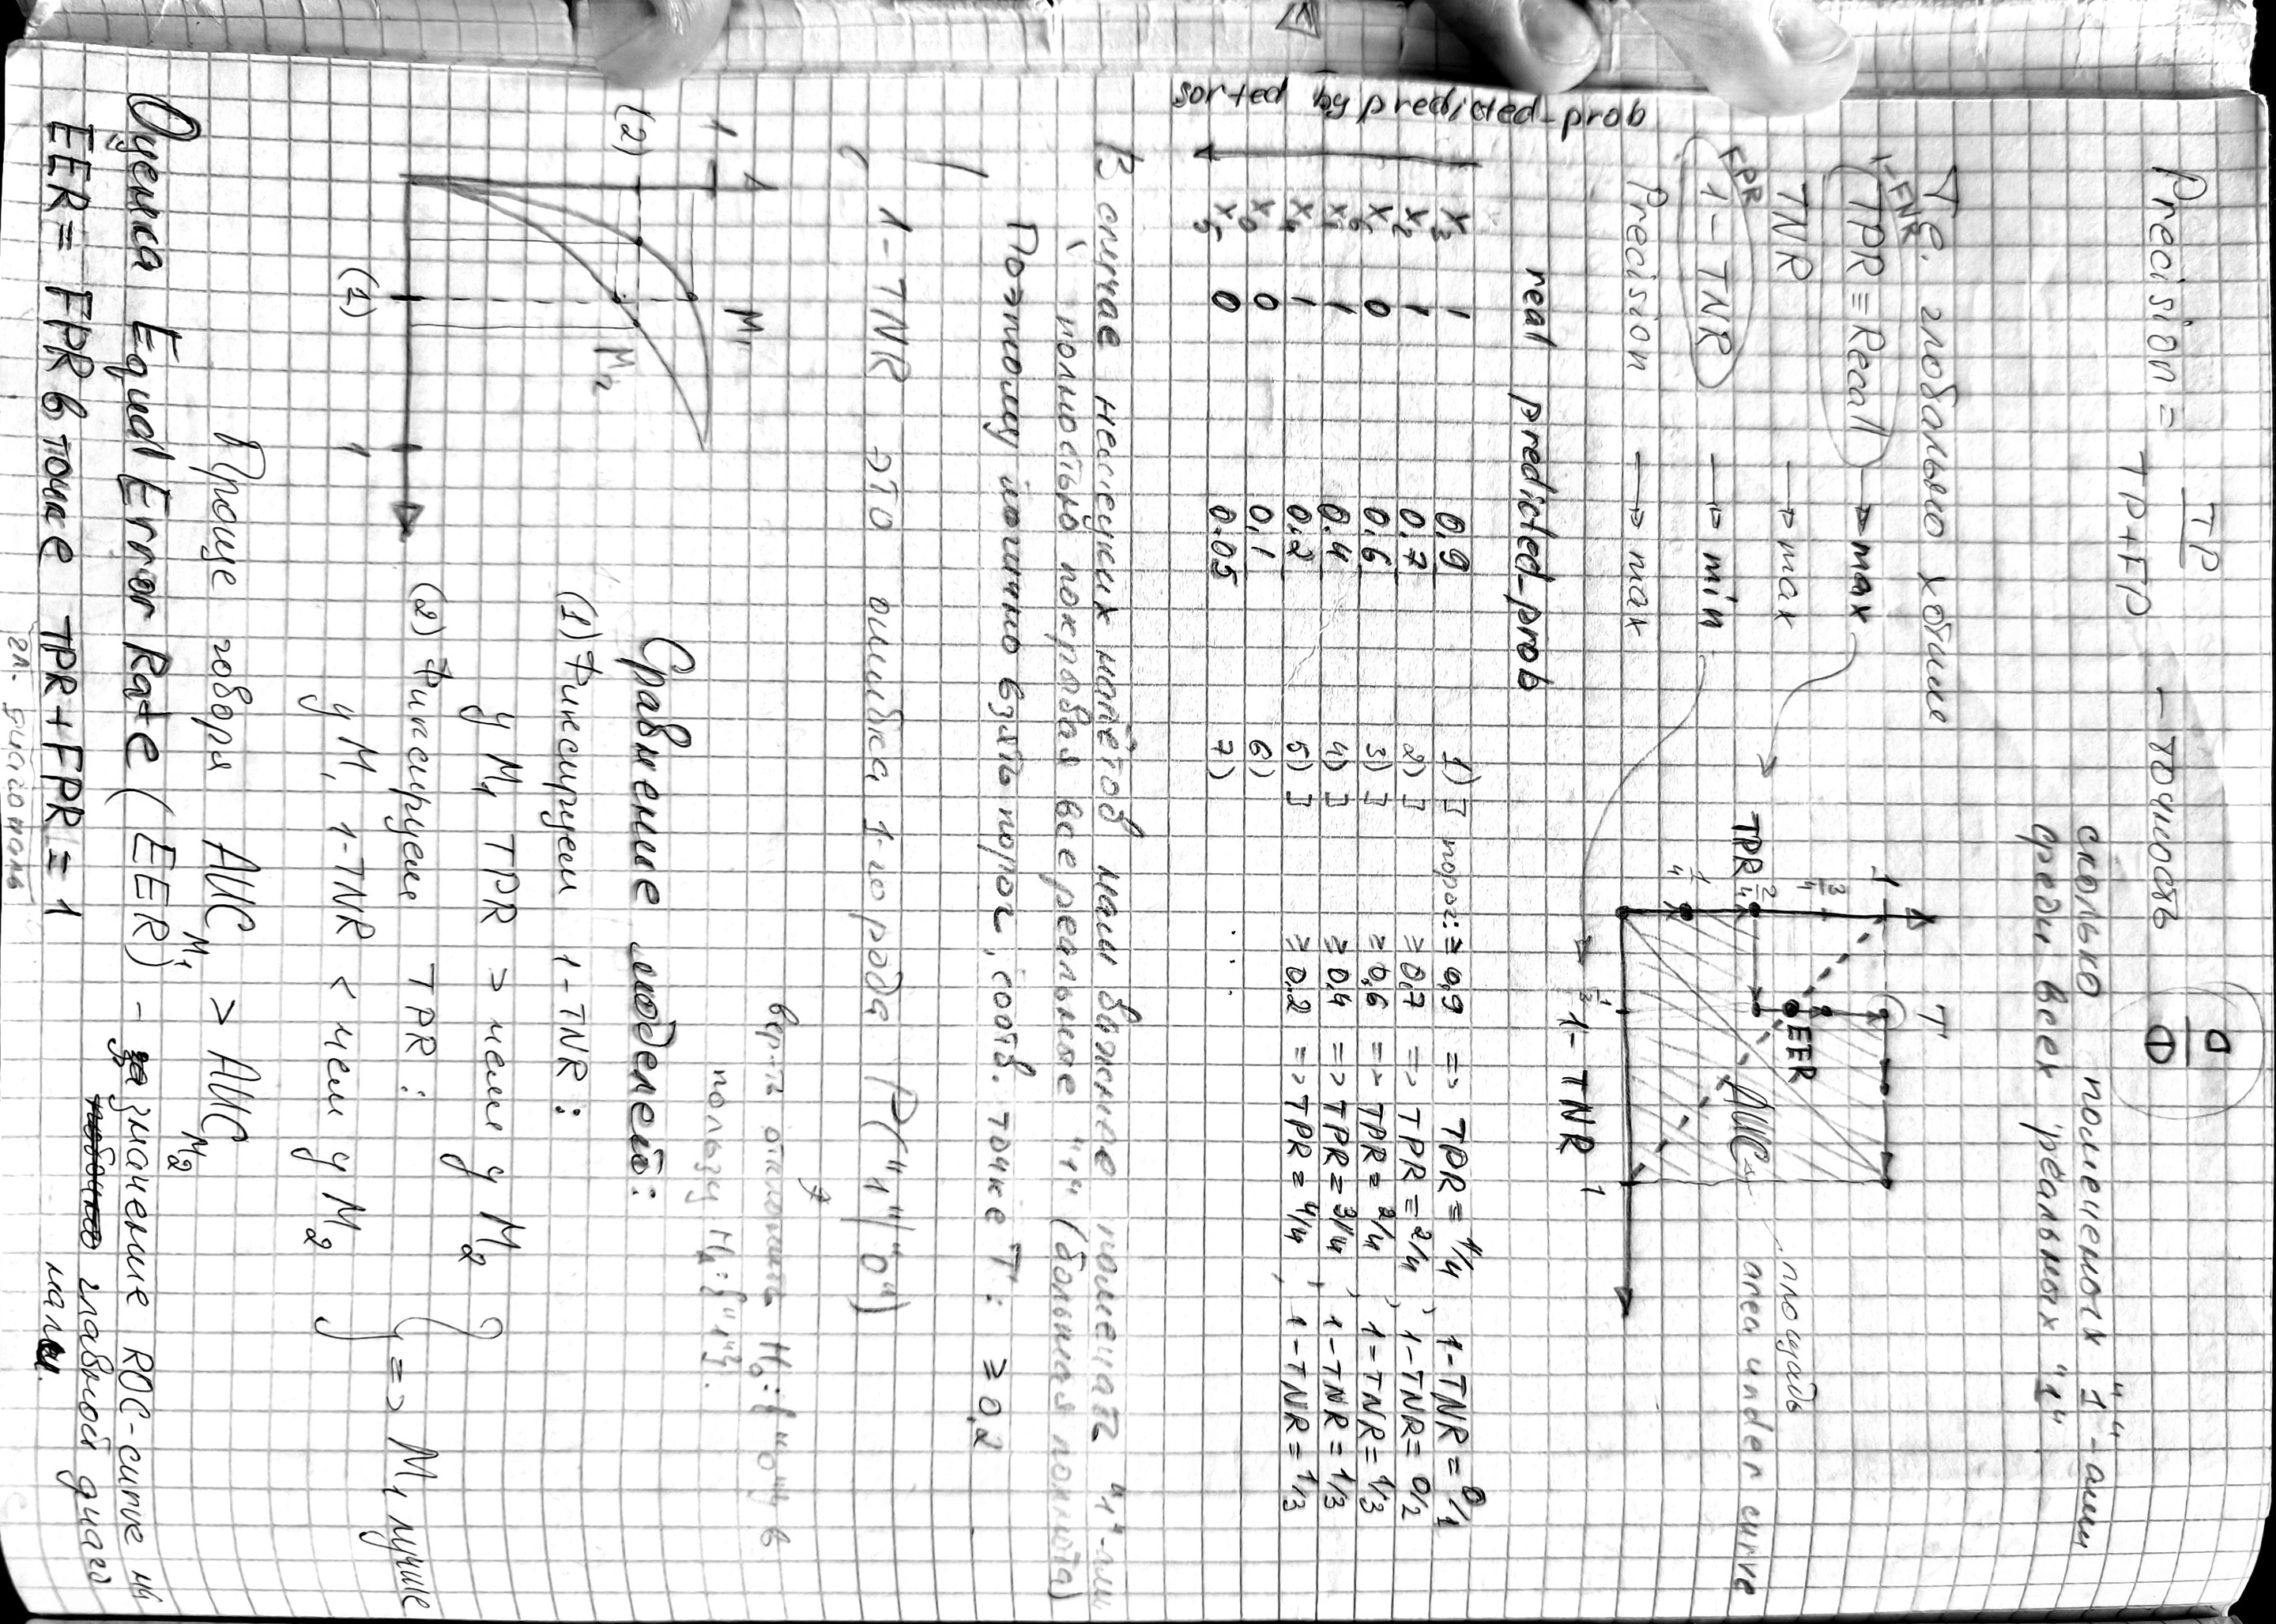 Precision = TP / TP+FP — точность
сколько помеченных "1"-ами
среди всех реальных "1"
Т.е. глобально хотим
1-FNR
TPR ≡ Recall → max
TNR → max
FPR
1-TNR → min
Precision → max
1
3/4
TPR 2/4
1/4
T
EER
AUC
площадь
area under curve
1/3
1
1-TNR
real predicted_prob
sorted by predicted_prob
x3 1 0,9 1) ] порог: ≥ 0,9 => TPR = 1/4, 1-TNR = 0/1
x2 1 0,7 2) ] ≥ 0,7 => TPR = 2/4, 1-TNR = 0/2
0 0,6 3) ] ≥ 0,6 => TPR = 2/4, 1-TNR = 1/3
1 0,4 4) ] ≥ 0,4 => TPR = 3/4, 1-TNR = 1/3
1 0,2 5) ] ≥ 0,2 => TPR = 4/4, 1-TNR = 1/3
0 0,1 6) . . .
x5 0 0,05 7)
В случае медицинских нам важнее помечать "1"-ми
полностью покрывая все реальные "1" (большая полнота)
Поэтому логично взять порог, соотв. точке T: ≥ 0,2
1-TNR это ошибка 1-го рода P("1"|"0")
вер-ть отклонить H0: {"0"} в
пользу H1: {"1"}.
1
(2)
M1
M2
(1)
1
Сравнение моделей:
(1) Фиксируем 1-TNR:
у M1 TPR > чем у M2
(2) Фиксируем TPR:
у M1 1-TNR < чем у M2
} => M1 лучше
Проще говоря AUC M1 > AUC M2
Оценка Equal Error Rate (EER) - значение ROC-curve на
главной диаго
EER = FPR в точке TPR+FPR = 1
гл. диагональ